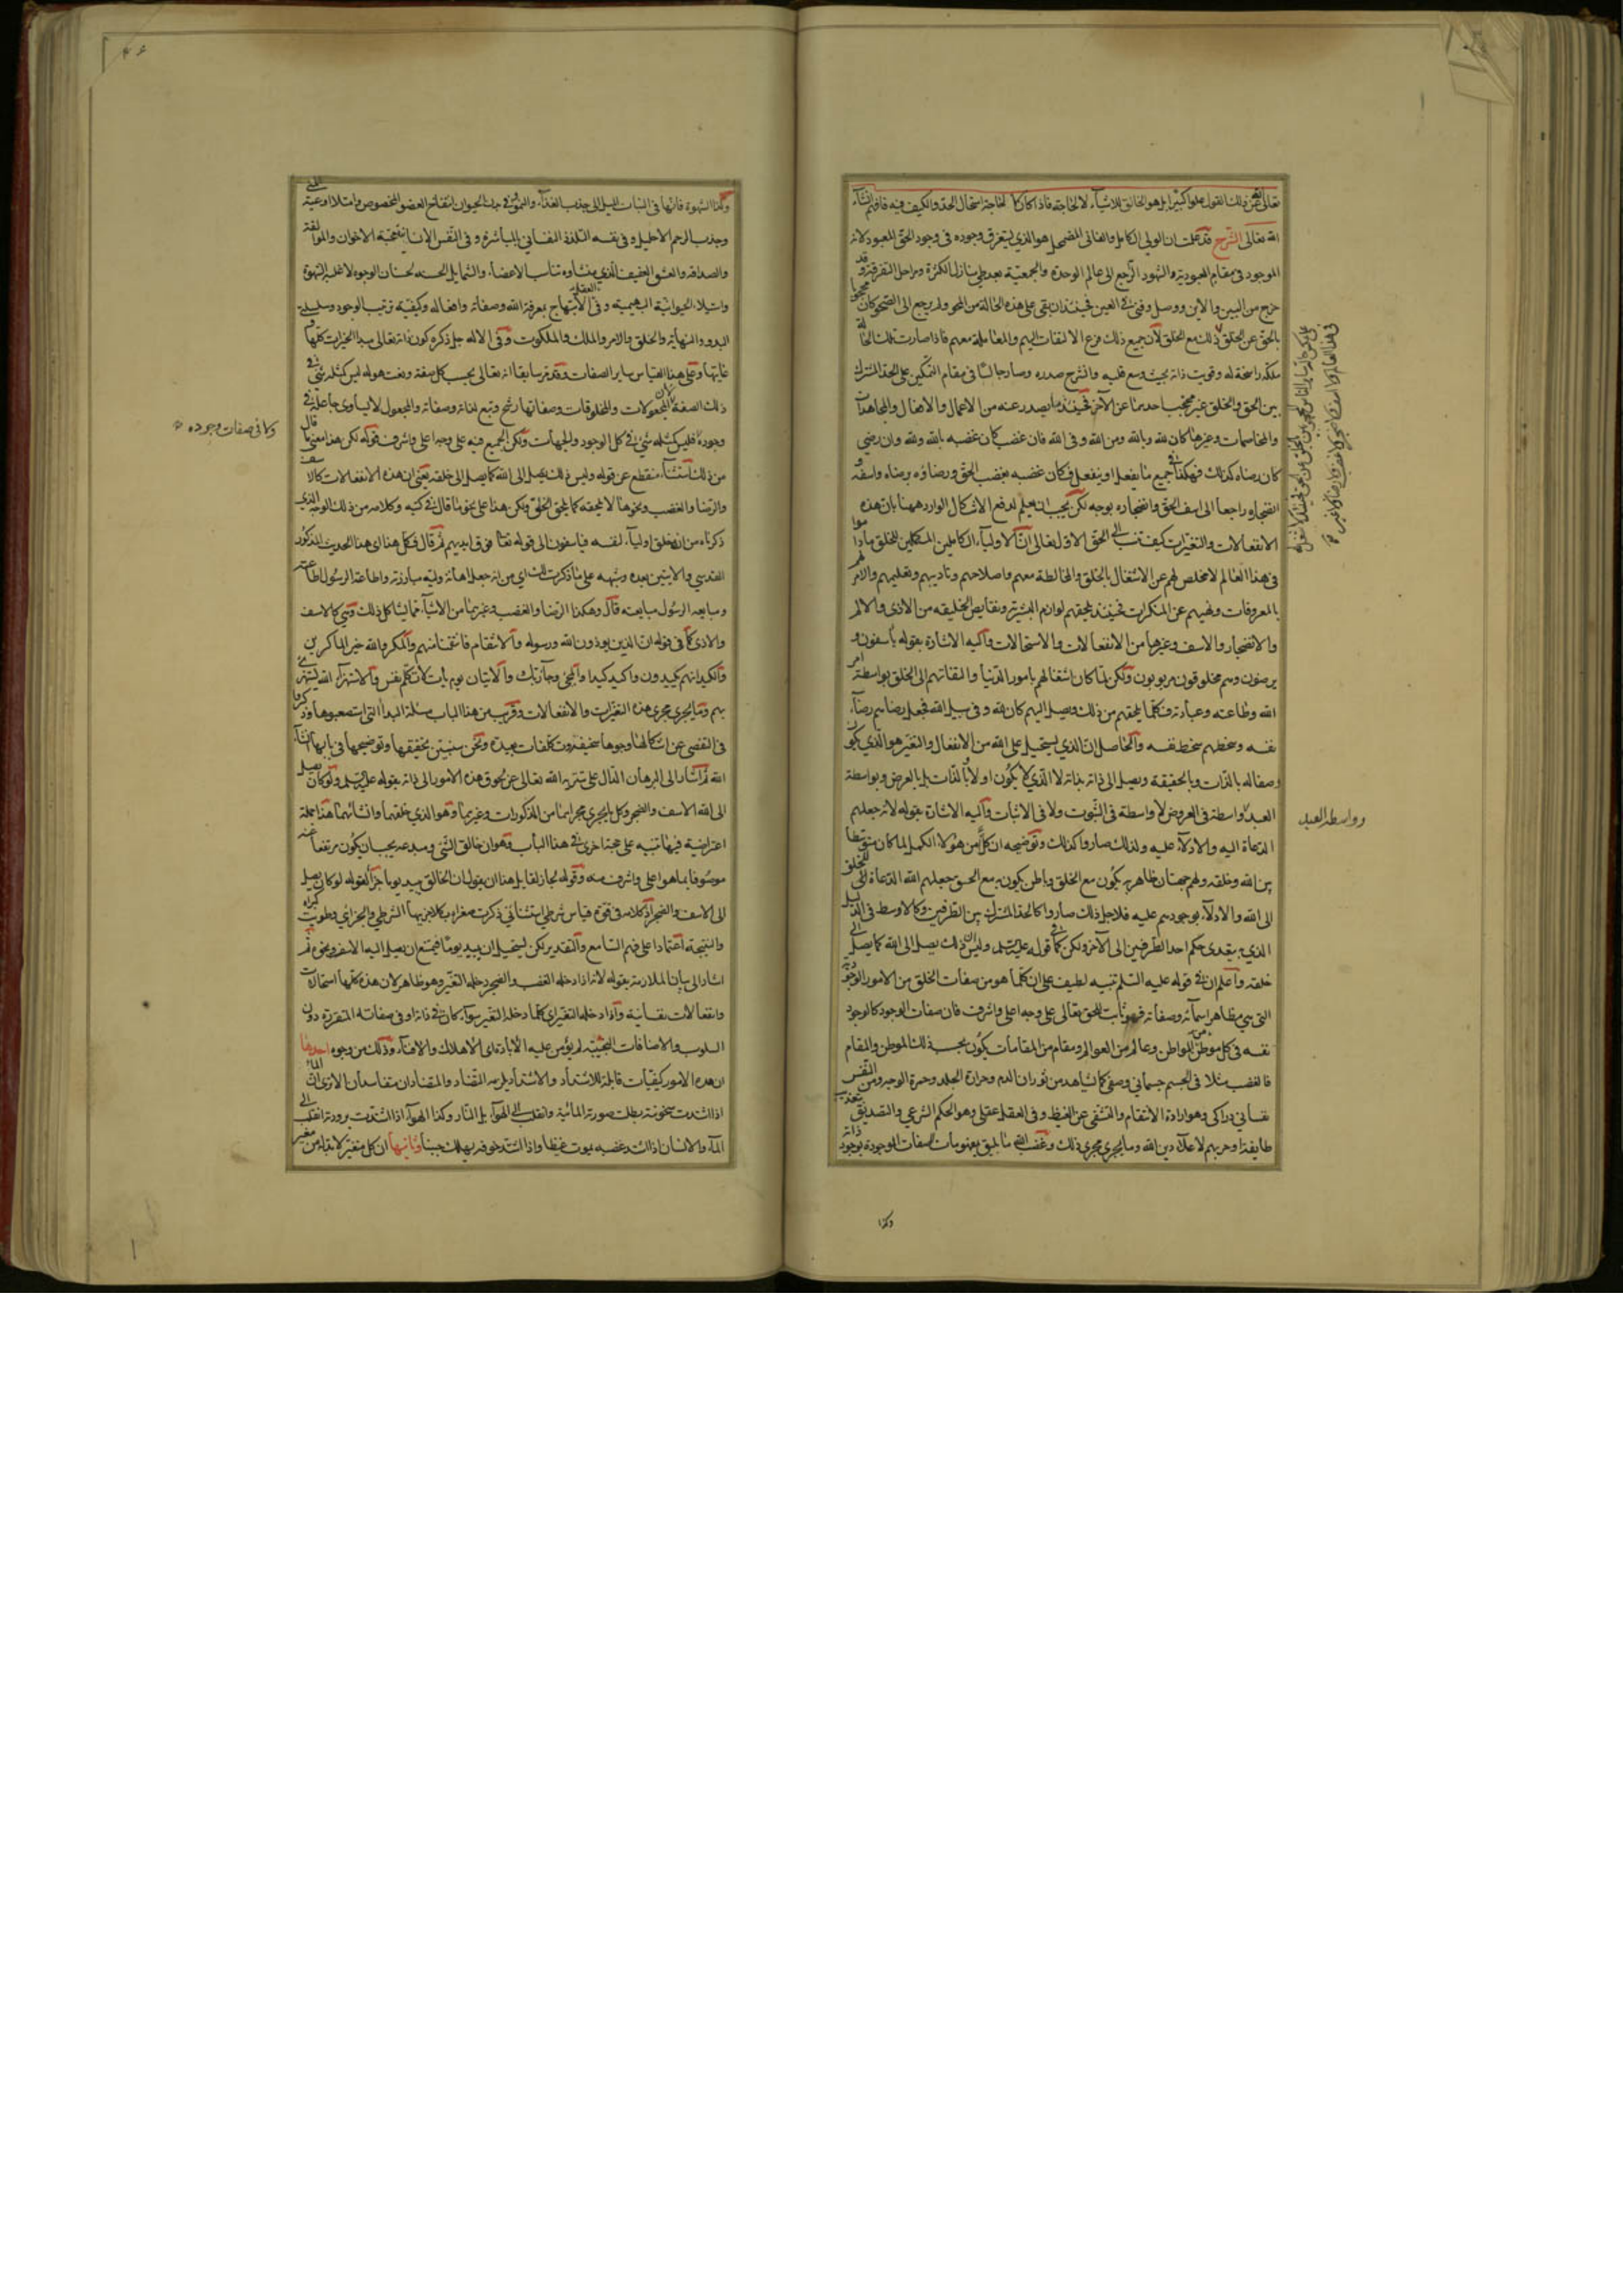 تعالى الله عن ذلك القول علوا كبيرا بل هو الخالق للاشياء لا لحاجة فاذا كان لا لحاجة استحال الحد والكيف فيه فافهم انشاء
الله تعالى الشرح قد علمت ان الولى الكامل والفانى المضمحل هو الذي يستغرق وجوده فى وجود الحق المعبود لانه
الموجود فى مقام العبودية والشهود الراجع الى عالم الوحدة والجمعية بعد طى منازل الكثرة ومراحل التفرقة وقد
خرج من البين والاين ووصل وفنى فى العين فحينئذ ان بقى على هذه الحالة من المحو ولم يرجع الى الصحو كان محجوبا
بالحق عن الخلق لان جميع ذلك فرع الالتفات اليهم والمعاملة معهم فاذا صارت تلك الحالة
ملكة راسخة له وقويت ذاته بحيث وسع قلبه وانشرح صدره وصار جالسا فى مقام التمكين على الحد المشترك
بين الحق والخلق غير محتجب باحدهما عن الآخر فحينئذ ما يصدر عنه من الاعمال والافعال والمجاهدات
والمخاصمات وغيرها كان لله وبالله ومن الله وفى الله فان غضب كان غضبه بالله ولله وان رضى
كان رضاه كذلك فهكذا فى جميع ما يفعل او ينفعل فكان غضبه بغضب الحق ورضاؤه برضاه واسفه
انضجاره راجعا الى اسف الحق وانضجاره بوجه لكن يجب ان يعلم لدفع الاشكال الوارد ههنا بان هذه
الانفعالات والتغيرات كيف تنسب الى الحق الاول تعالى ان الاولياء الكاملين المكملين للخلق ماداموا
فى هذا العالم لا مخلص لهم عن الاشتغال بالخلق والمخالطة معهم واصلاحهم وتاديبهم وتعليمهم والامر لهم
بالمعروفات ونهيهم عن المنكرات فحينئذ يلحقهم لوازم البشرية ونقايص الخليقه من الاذى والالم
والانضجار والاسف وغيرها من الانفعالات والاستحالات واليه الاشارة بقوله يأسفون و
يرضون وهم مخلوقون مربوبون ولكن لما كان اشتغالهم بامور الدنيا والتفاتهم الى الخلق بواسطة امر
الله وطاعته وعبادته فكلما يلحقهم من ذلك ويصل اليهم كان لله وفى سبيل الله فجعل رضاهم رضاء
نفسه وسخطهم سخط نفسه والحاصل ان الذي يستحيل على الله من الانفعال والتغير هو الذي يكون
وصفا له بالذات وبالحقيقة ويصل الى ذاته بذاته لا الذي لا يكون اولا وبالذات بل بالعرض وبواسطة
العبد واسطة فى العروض لا واسطة فى الثبوت ولا فى الاثبات واليه الاشارة بقوله لانه جعلهم
الدعاة اليه والادلاء عليه ولذلك صاروا كذلك وتوضيحه ان كلا من هؤلاء الكمل لما كان متوسطا
بين الله وخلقه ولهم جهتان ظاهر به يكون مع الخلق وباطن يكون به مع الحق جعلهم الله الدعاة للخلق
الى الله والادلاء بوجودهم عليه فلاجل ذلك صاروا كالحد المشترك بين الطرفين وكالاوسط فى الدليل
الذي به يتعدى حكم احد الطرفين الى الآخر ولكن كما فى قوله عليه السلم وليس ان ذلك يصل الى الله كما يصل الى
خلقه واعلم ان فى قوله عليه السلم تنبيه لطيف على ان كلما هو من صفات الخلق من الامور الوجودية
التى هى مظاهر اسمائه وصفاته فهو ثابت للحق تعالى على وجه اعلى واشرف فان صفات الوجود كالوجود
نفسه فى كل موطن من المواطن وعالم من العوالم ومقام من المقامات يكون بحسب ذلك الموطن والمقام
فالغضب مثلا فى الجسم جسمانى وصفى كما يشاهد من ثوران الدم وحرارة الجلد وحمرة الوجه ومن النفس
نفسانى ادراكى وهو ارادة الانتقام والتشفى عن الغيظ وفى العقل عقلى وهو الحكم الشرعى والتصديق بتعذيب
طايفة او حربهم لاعلاء دين الله وما يجرى مجرى ذلك وغضب الله ما يليق بمفهومات الصفات الموجودة بوجود ذاته
وواسطة العبد
وكذا
وكذا الشهوة فانها فى النبات الميل الى جذب الغذاء والنمو وفى بدن الحيوان انفتاح العضو المخصوص وامتلاء اوعيته المنى
وجذب الرحم الاحليل وفى نفسه التلذذ النفسانى بالمباشرة وفى النفس الانسانية محبة الاخوان والموالفة
والصداقة والعشق العفيف الذي منشاؤه تناسب الاعضاء والشمايل الحسنة لحسان الوجوه لا غلبة الشهوة
واستيلاء الحيوانية البهيمية وفى العقل الابتهاج بمعرفة الله وصفاته وافعاله وكيفية ترتيب الوجود وسلسلتى
البدو والنهاية والخلق والامر والملك والملكوت وفى الاله جل ذكره كون ذاته تعالى مبدا الخيرات كلها و
غايتها وعلى هذا القياس ساير الصفات وقد مر سابقا انه تعالى بحسب كل صفة ونعت هو له ليس كمثله شئ فى
ذلك الصفة لان المجعولات والمخلوقات وصفاتها رشح وتبع لذاته وصفاته والمجعول لا يساوى جاعله فى
وجوده فليس كمثله شئ فى كل الوجود والجهات ولكن الجميع فيه على وجه اعلى واشرف فقوله لكن هذا معنى ما قال
من ذلك استثناء منقطع عن قوله وليس ذلك يصل الى الله كما يصل الى خلقه يعنى ان هذه الانفعالات كالاسف
والرضا والغضب ونحوها لا يلحقه كما يلحق الخلق ولكن هذا على نحو ما قال فى كتبه وكلامه من ذلك الوجه الذي
ذكرناه من انه خلق اولياء لنفسه فيأسفون الى قوله تعالى فوق ايديهم ثم قال فكل هذا اى هذا الحديث المذكور
القدسي والآيتين بعده وشبهه على ما ذكرت لك اى من انه جعل اهانة وليه مبارزته واطاعة الرسول اطاعته
ومبايعة الرسول مبايعته قال وهكذا الرضا والغضب وغيرهما من الاشياء مما يشاكل ذلك وهى كالاسف
والاذى كما فى قوله ان الذين يوذون الله ورسوله والانتقام فانتقمنا منهم والمكر والله خير الماكرين
والكيد انهم يكيدون واكيد كيدا والمجئ وجاء ربك والاتيان يوم يأت لا تكلم نفس والاستهزاء الله يستهزئ
بهم وما يجرى مجرى هذه التغيرات والانفعالات وقريب من هذا الباب مسئلة البداء التى استصعبوها وذكروا
فى التفصى عن اشكالها وجوها سخيفة وتكلفات بعيدة ونحن سنبين تحقيقها وتوضيحها فى بابها انشاء
الله ثم اشار الى البرهان الدال على تنزيه الله تعالى عن لحوق هذه الامور الى ذاته بقوله عليه السلم ولو كان يصل
الى الله الاسف والضجر وكل ما يجرى مجراهما من المذكورات وغيرها وهو الذي خلقهما وانشأهما هذا جملة
اعتراضية فيها تنبيه على حجة اخرى فى هذا الباب وهو ان خالق الشئ ومبدعه يجب ان يكون مرتفعا عنه
موصوفا بما هو اعلى واشرف منه وقوله لجاز لقايل هذا ان يقول ان الخالق يبيد يوما جزاء لقوله لو كان يصل
الى الاسف والضجر اذ كلامه فى قوة قياس شرطى استثنائى ذكرت صغراه بكلا جزئيها الشرطى والجزائى وطويت كبراه
والنتيجة اعتمادا على فهم السامع والتقدير لكن يستحيل ان يبيد يوما فيمتنع ان يصل اليه الاسف ونحوه ثم
اشار الى بيان الملازمة بقوله لانه اذا دخله الغضب والضجر دخله التغير وهو ظاهر لان هذه كلها استحالات
وانفعالات نفسانية واذا دخله التغير اى كلما دخله التغير سواء كان فى ذاته او فى صفاته المتقررة دون
السلوب والاضافات المحضة لم يؤمن عليه الابادة اى الاهلاك والافناء وذلك من وجوه احدها
ان هذه الامور كيفيات قابلة للاشتداد والاشتداد يلزمه التضاد والمتضادان متفاسدان الا ترى ان الماء
اذا اشتدت سخونته بطلت صورته المائية وانقلب الى الهواء بل النار وكذا الهواء اذا اشتدت برودته انقلب الى
الماء والانسان اذا اشتد غضبه يموت غيظا واذا اشتد خوفه يهلك جبنا وثانيها ان كل متغير لا بد له من مغير
وكما فى صفات وجوده